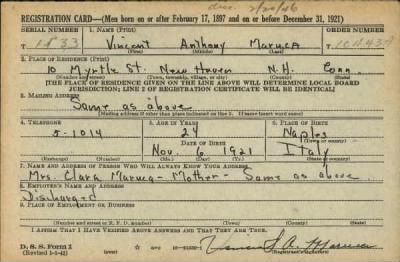 2/20/46
REGISTRATION CARD—(Men born on or after February 17, 1897 and on or before December 31, 1921)
SERIAL NUMBER 1. NAME (Print) ORDER NUMBER
Vincent Anthony Maruca
(First) (Middle) (Last)
2. PLACE OF RESIDENCE (Print)
10 Myrtle St. New Haven N.H. Conn.
(Number and street) (Town, township, village, or city) (County) (State)
[THE PLACE OF RESIDENCE GIVEN ON THE LINE ABOVE WILL DETERMINE LOCAL BOARD
JURISDICTION; LINE 2 OF REGISTRATION CERTIFICATE WILL BE IDENTICAL]
3. MAILING ADDRESS
Same as above
[Mailing address if other than place indicated on line 2. If same insert word same]
4. TELEPHONE 5. AGE IN YEARS 6. PLACE OF BIRTH
5-1014 24 Naples
DATE OF BIRTH (Town or county)
Nov. 6 1921 Italy
(Exchange) (Number) (Mo.) (Day) (Yr.) (State or country)
7. NAME AND ADDRESS OF PERSON WHO WILL ALWAYS KNOW YOUR ADDRESS
Mrs. Clara Maruca - Mother - Same as above
8. EMPLOYER'S NAME AND ADDRESS
Discharged
9. PLACE OF EMPLOYMENT OR BUSINESS
(Number and street or R. F. D. number) (Town) (County) (State)
I AFFIRM THAT I HAVE VERIFIED ABOVE ANSWERS AND THAT THEY ARE TRUE.
D. S. S. Form 1
(Revised 1-5-42) (Registrant's signature)
Vincent A. Maruca